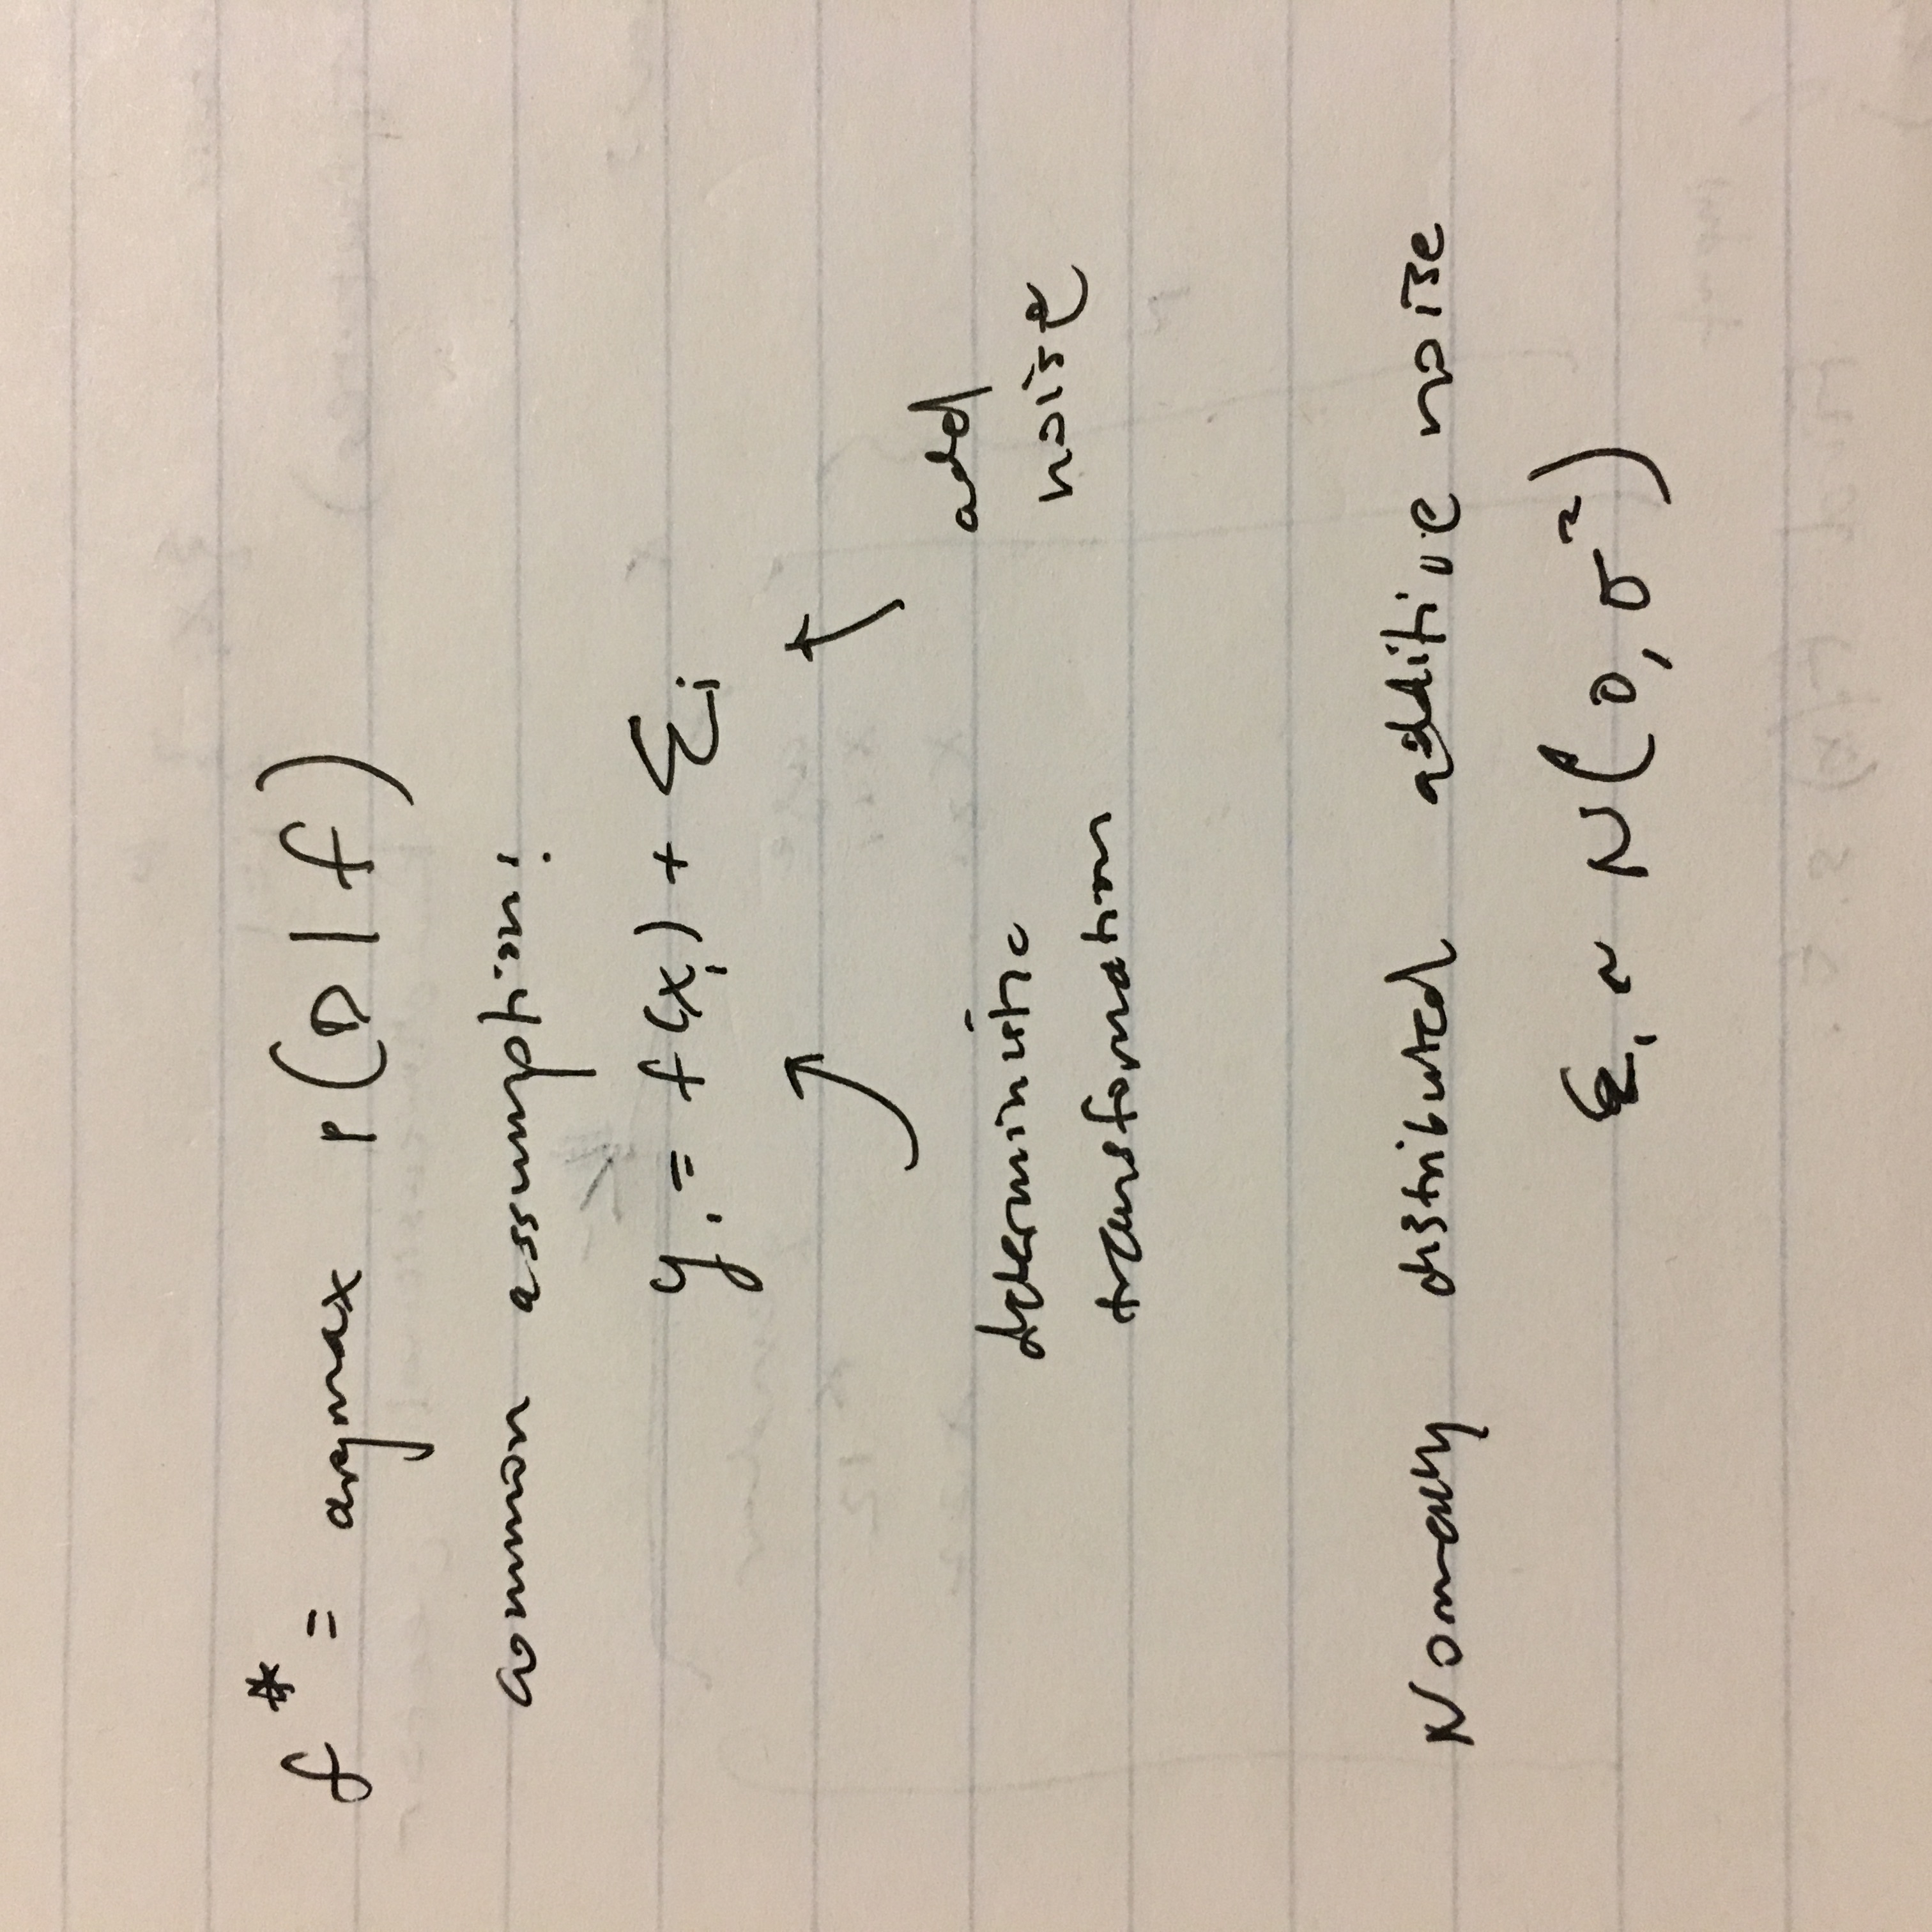 f* = argmax p(D|f)
common assumption:
yᵢ = f(xᵢ) + εᵢ
deterministic
transformation
add
noise
Normally distributed additive noise
εᵢ ~ N(0, σ²)